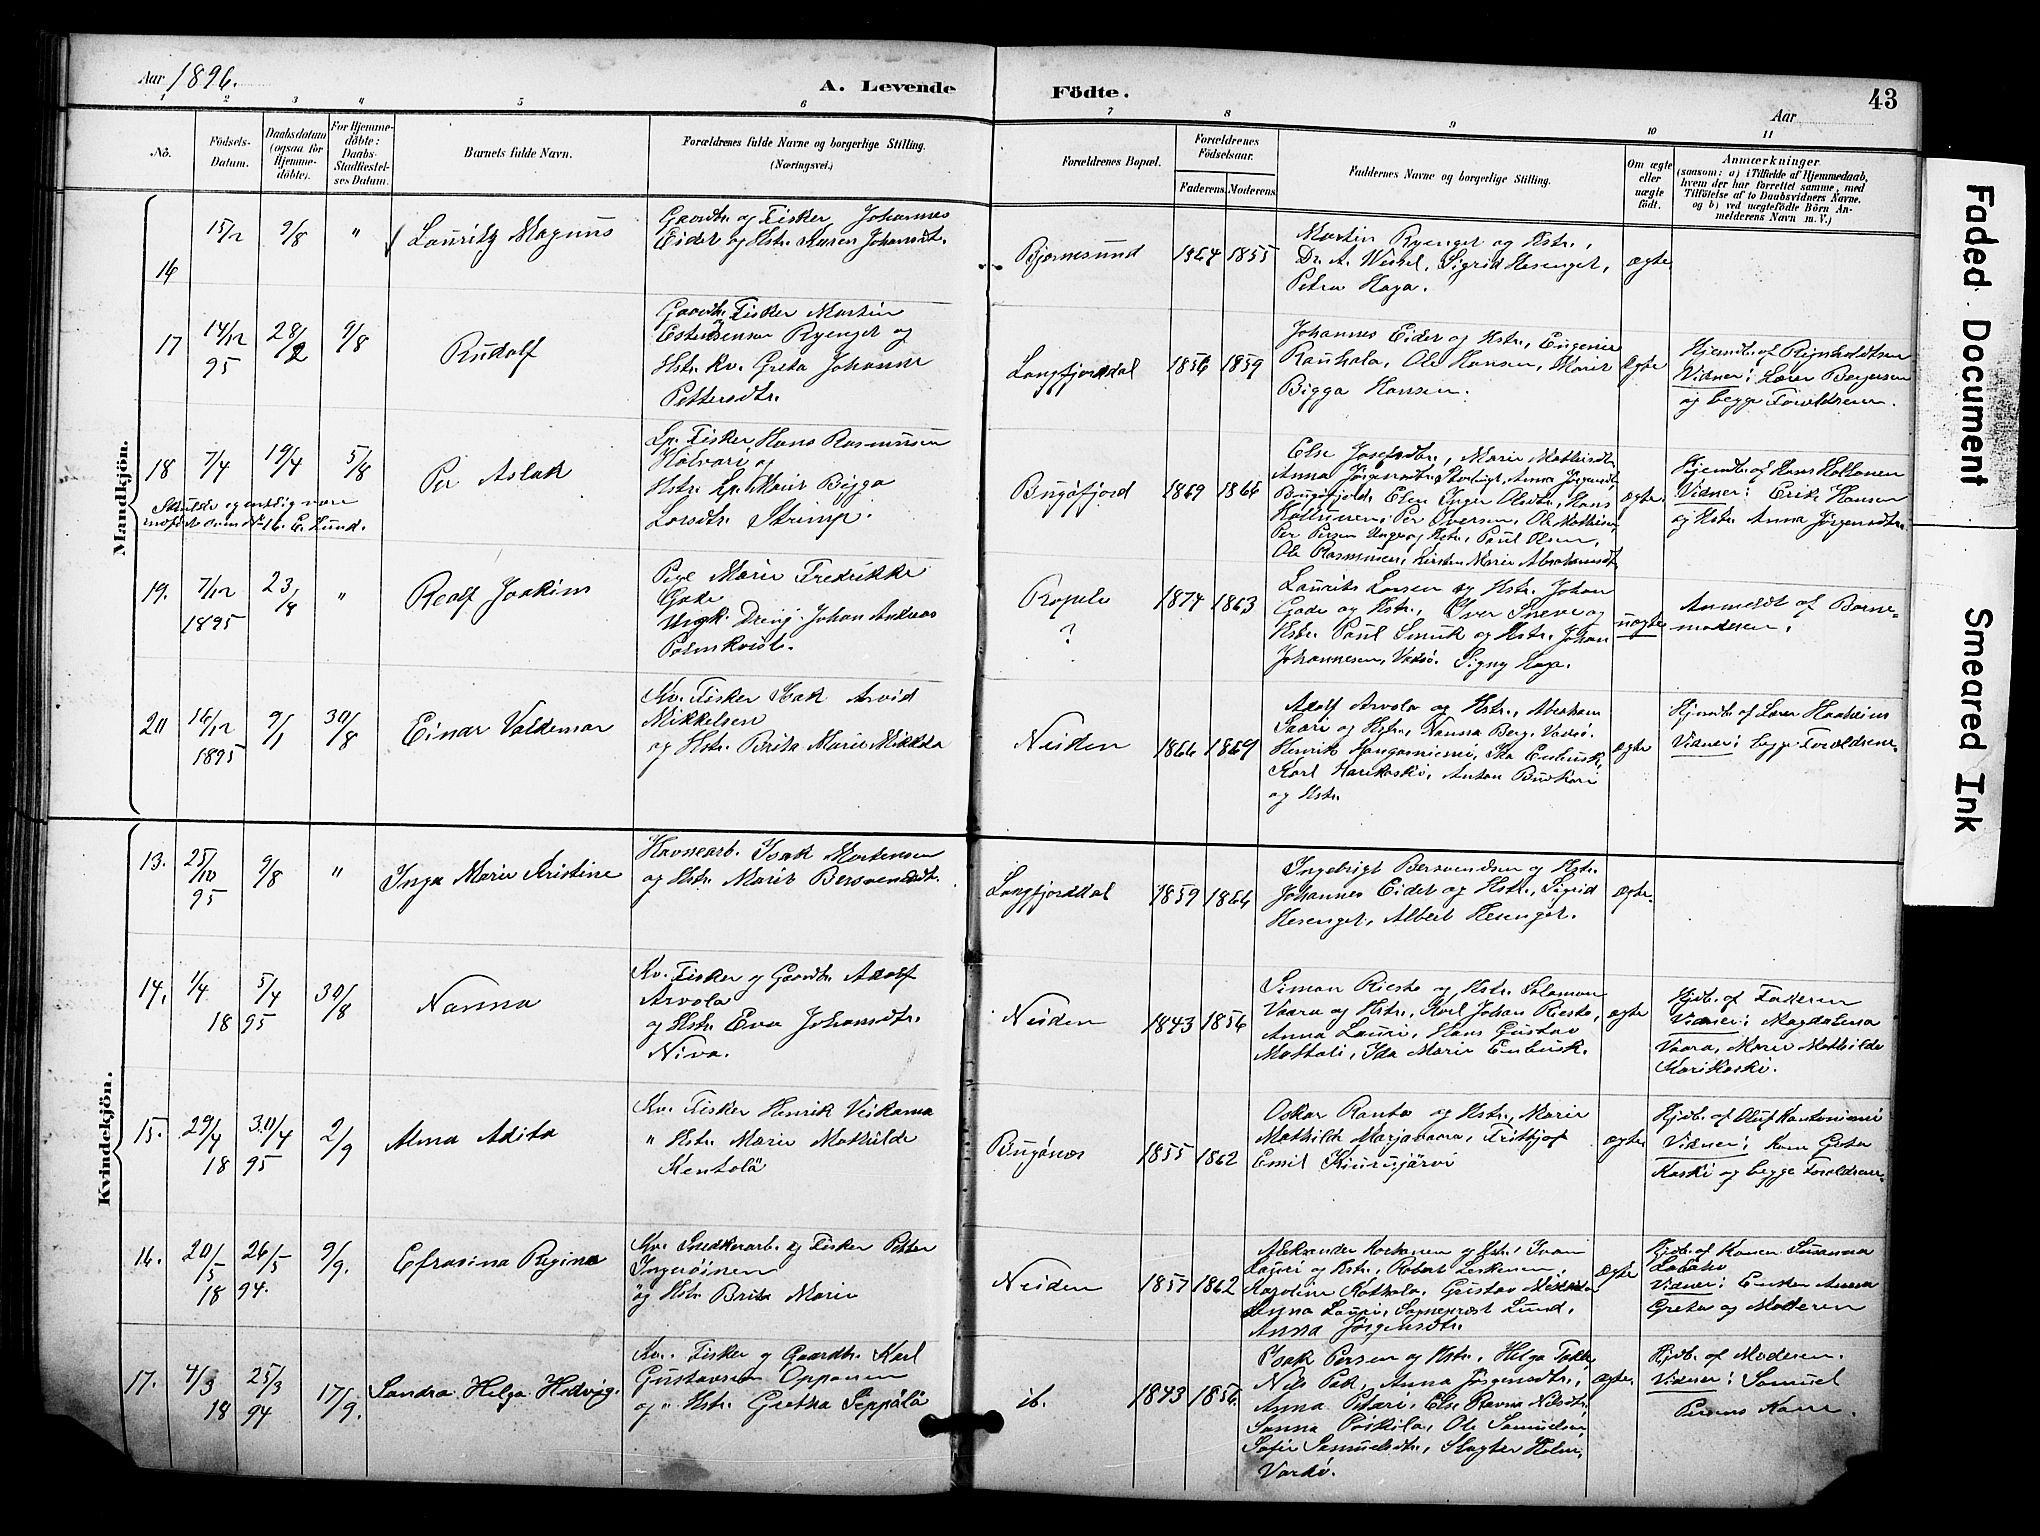 Aar 1896.
A. Levende Födte.
43
Aar
1 2 3 4 5 6 7 8 9 10 11
No.
Födsels-Datum.
Daabsdatum (ogsaa for Hjemmedöbte).
For Hjemmedöbte: Daabs-Stadfæstelses Datum.
Barnets fulde Navn.
Forældrenes fulde Navne og borgerlige Stilling. (Næringsvei.)
Forældrenes Bopæl.
Forældrenes Födselsaar.
Faderens. Moderens.
Faddernes Navne og borgerlige Stilling.
Om ægte eller uægte födt.
Anmærkninger
(saasom: a) i Tilfælde af Hjemmedaab,
hvem der har forrettet samme, med
Tilföielse af to Daabsvidners Navne,
og b) ved uægtefödte Börn Anmelderens Navn m. V.)
Mandkjön.
16
15/12 9/8 "
Lauritz Magnus
Gaardbr. og Fisker Johannes
Eidet og Hstr. Maren Johansdt.
Bjørnesund
1864 1855
Martin Ryenget og Hstr.,
Dr. A. Wessel, Sigrid Hesenget,
Petra Haga.
ægte
17
14/12 95
28/2 9/8
Rudolf
Gaardbr. og Fisker Martin
Estensensen Ryenget og
Hstr. Kv. Greta Johanne
Pettersdtr.
Langfjorddal
1856 1859
Johannes Eidet og Hstr., Eugenie
Rauhala, Ole Hansen, Marit
Bigga Hansen.
Ægte
Hjemdb. af Reinholdtsen
Vidner: Lærer Børjesen
og begge Forældrene.
18
7/4 19/4 5/8
Per Aslak
Lp. Fisker Hans Rasmussen
Halvari og
Hstr. Lp. Marit Bigga
Larsdtr. Strimp.
Skulde egentlig være
indført som No 16. E. Lund.
Bugöfjord
1869 1866
Else Josefsdtr., Marie Mathisdtr.
Anna Jørgensdtr., Anna Jørgensdt.
Bugöfjord, Elen Inger Olsdtr., Hans
Kallunen, Per Iversen, Ole Mathisen,
Per Persen Unge og Hstr., Paul Olsen,
Ole Rasmussen, Kirsten Marie Abrahamsdt.
ægte.
Hjemdb. af Hans Haltonen
Vidner: Erik Hansen
og Hstr. Anna Jörgensdtr.
19.
7/12 1895
23/8 "
Rolf Joakim
Pige Marie Fredrikke
Gade
Ungk. Dreng Johan Andreas
Palmkvist.
Ropelv
?
1874 1863
Laurits Larsen og Hstr. Johan
Gade og Hstr., Over Sneve og
Hstr. Paul Smuk og Hstr. Johan
Johannesen, Vadsö. Signy Haga.
uægte
Anmeldt af Barne-
moderen.
20
16/12 1895
9/1 30/8
Einar Valdemar
Kv. Fisker Isak Arvid
Mikkelsen
og Hstr. Brita Marie Mikkola
Neiden
1866 1869
Adolf Arvola og Hstr., Abraham
Saari og Hstr., Nanna Berg, Vadsö.
Henrik Kangasniemi, Ida Enbusk,
Karl Harikoski, Anton
og Hstr.
ægte
Hjemdb. af Lærer Haaheim
Vidner: begge Forældrene.
Kvindekjön.
13.
25/10 95
9/8 "
Inga Marie Kristine
Havnearb. Isak Mortensen
og Hstr. Marit Bersvendsdt.
Langfjorddal
1859 1866
Ingebrigt Bersvendsen og Hstr.
Johannes Eidet og Hstr., Sigrid
Hesenget, Albert Hesenget.
ægte.
14.
1/4 5/4 30/8
18 95
Nanna
Kv. Fisker og Gaardbr. Adolf
Arvola
og Hstr. Eva Johansdtr.
Niva.
Neiden
1843 1856
Simon Riesto og Hstr. Salamon
Vaara og Hstr., Karl Johan Riesto,
Anna Lauri, Hans Gustav
Mattali, Ida Marie Enbusk.
ægte
Hjdb. af Faderen
Vidner: Magdalena
Vaara, Marie Mathilde
Harikoski.
15.
29/4 30/4 2/9
18 95
Alma Adita
Kv. Fisker Henrik Veikama
" Hstr. Marie Mathilde
Kentolä
Bugönæs
1855 1862
Oskar Ranta og Hstr., Marie
Mathilde Marjavaara, Fritjof
Emil Kiurujärvi
ægte
Hjdb. af Oluf Kantoniemi
Vidner: Kone Greta
Koski og begge Forældrene.
16.
20/5 26/5 9/9.
18 94.
Efrosina Regina
Kv. Snedkerarb. og Fisker Petter
Ingeröinen
og Hstr. Brita Marie
Neiden
1857 1862
Aleksander Korhonen og Hstr., Ivan
Lauri og Hstr., Robert Leskinen,
Karoline Rathala, Gustav Mikkola
Anna Lauri, Sogneprest Lund,
Anna Jörgensdtr.
ægte
Hjdb. af Konen Susanna
Vidner: Enken Anna
Greta og Moderen
17.
4/3 25/3 17/9.
18 94
Sandra Helga Hedvig.
Kv. Fisker og Gaardbr. Karl
Gustavsen Oppanen
og " Hstr. Gretha Seppälä
ib.
1843 1856.
Isak Persen og Hstr., Helga
Nils Pak, Anna Jörgensdtr.,
Anna Petari, Else Ravna Nilsdtr.
Sanna Poskila, Ole Samuelsen,
Sofie Samuelsdtr., Slagter Holm,
Vardö.
ægte.
Hjdb. af Moderen.
Vidner: Samuel
Persens Kone.
Faded Document
Smeared Ink